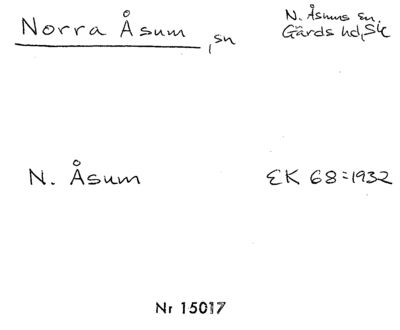 Norra Åsum, sn
N. Åsums sn,
Gärds hd, Sk
N. Åsum
EK 68:1932
Nr 15017